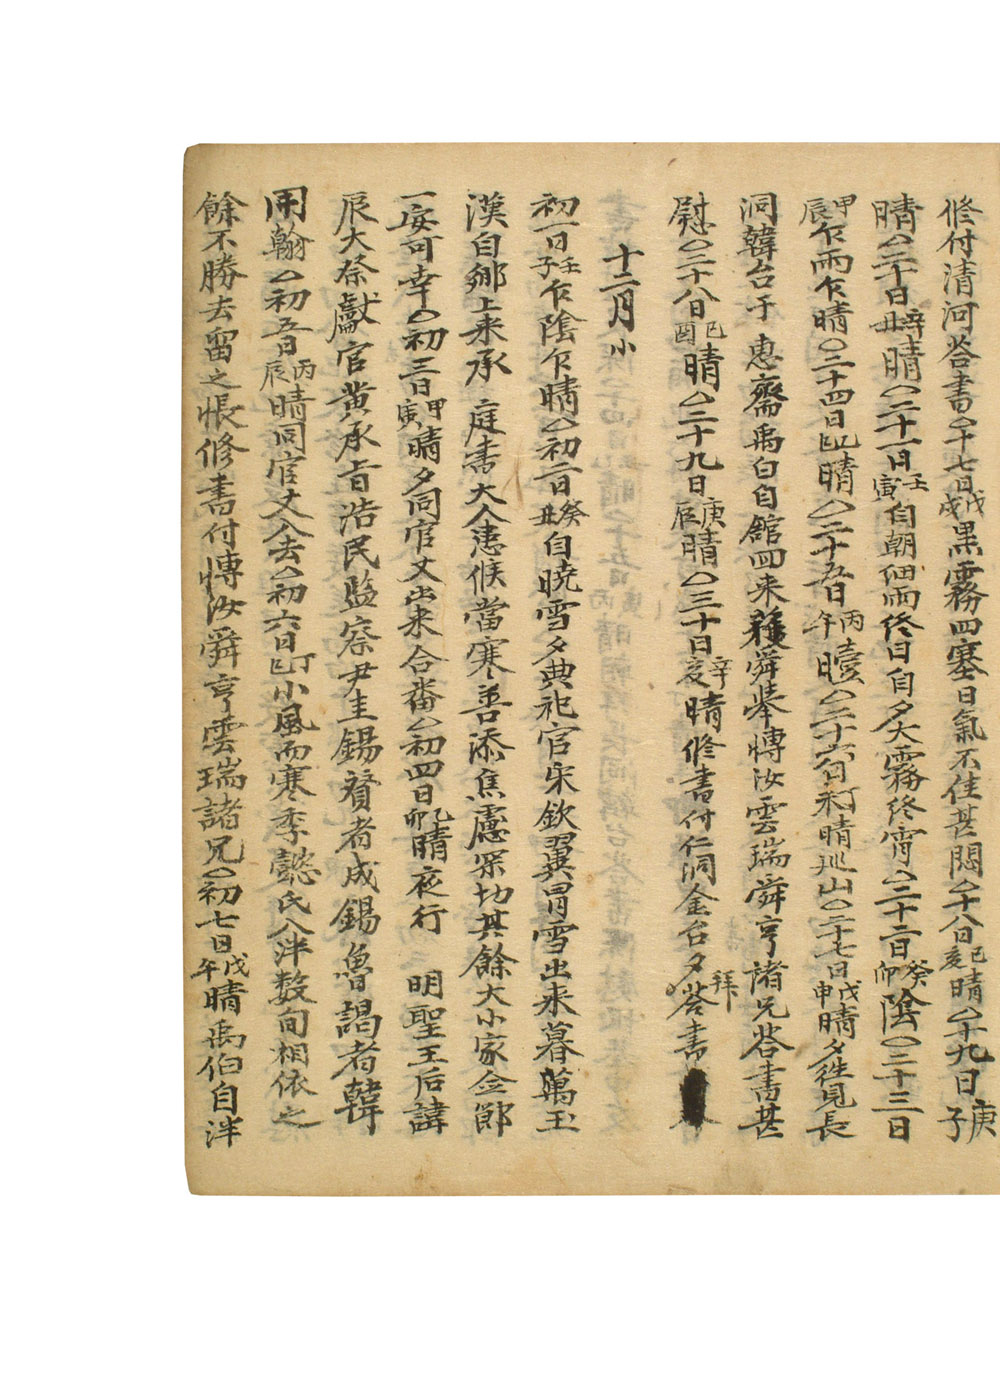 修付清河答書△十七日戊戌黑霧四塞日氣不佳甚悶△十八日己亥晴△十九日庚子
晴△二十日辛丑晴△二十一日壬寅自朝細雨終日自夕大霧終宵△二十二日癸卯陰△二十三日
甲辰乍雨乍晴△二十四日乙巳晴△二十五日丙午曀△二十六日丁未晴巡山△二十七日戊申晴夕徃見長
洞韓台于 惠齋禹白自館四來蓷舜擧愽汝雲瑞舜亨諸兄答書甚
慰△二十八日己酉晴△二十九日庚辰晴△三十日辛亥晴修書付仁洞金台夕拜答書
十二月小
初一日壬子乍陰乍晴△初二日癸丑自曉雪夕典祀官宋欽翼冒雪出來暮萬玉
漢自鄕上來承 庭書大人患候當寒善添焦慮深切其餘大小家僉節
一安可幸△初三日甲寅晴夕同官丈出來合番△初四日乙卯晴夜行 明聖王后諱
辰大祭獻官黃承旨浩民監察尹圭錫賛者成錫魯謁者韓
用翰△初五日丙辰晴同官丈入去△初六日丁巳小風而寒季懿氏入泮数旬相依之
餘不勝去留之悵修書付愽汝舜亨雲瑞諸兄△初七日戊午晴禹伯自泮